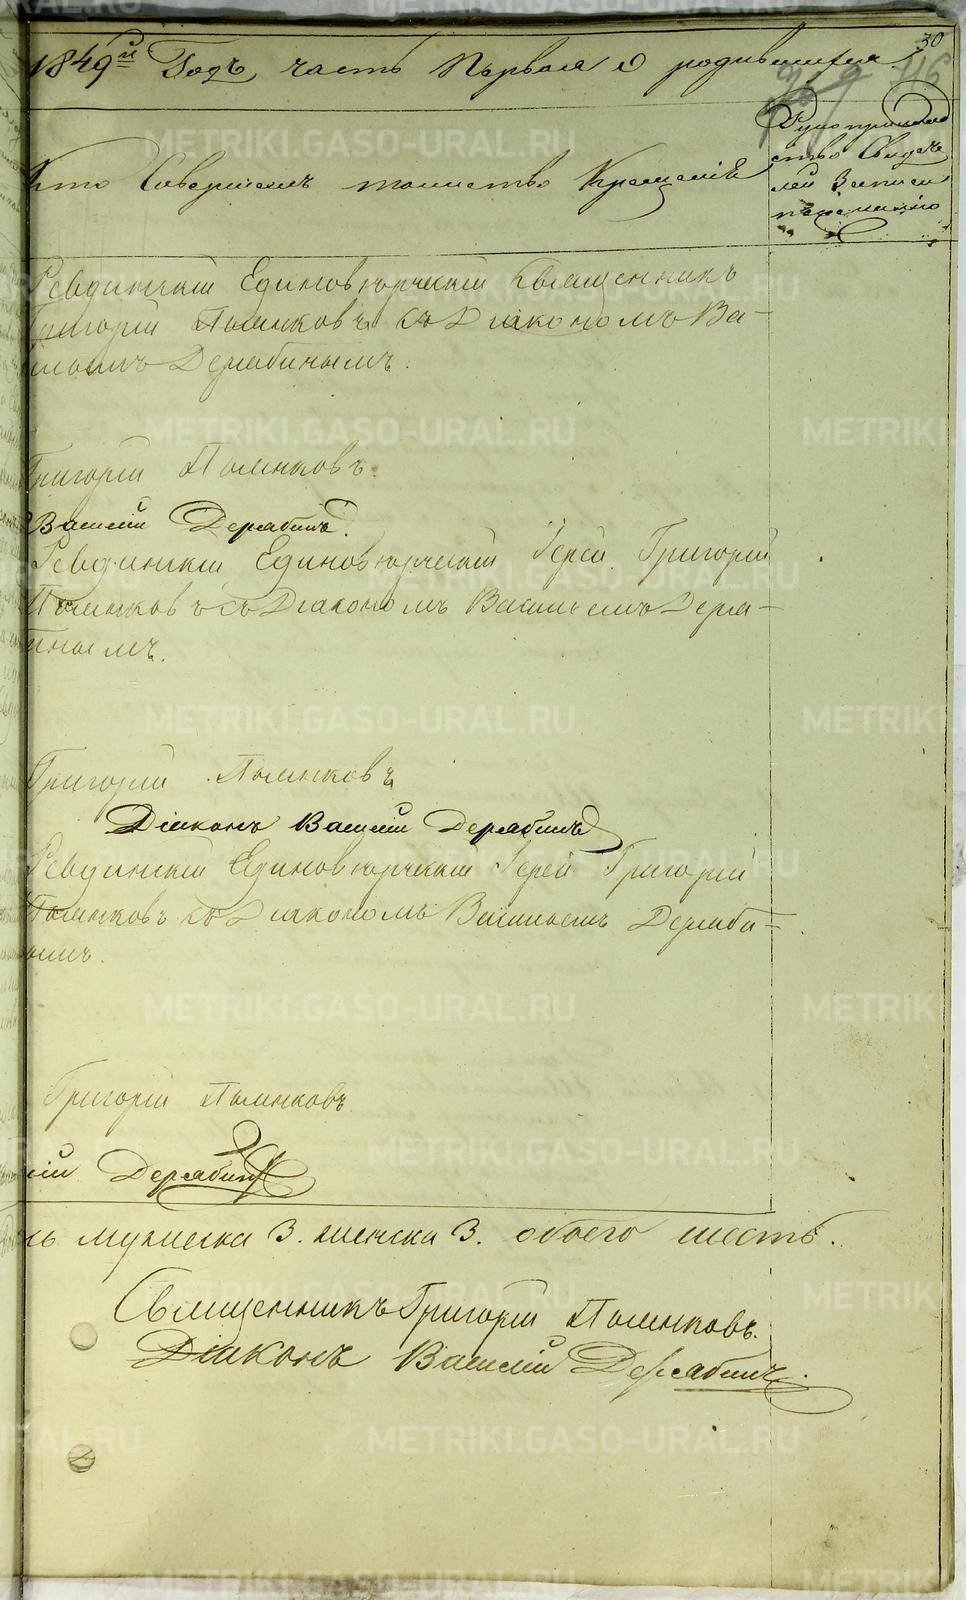 30
1849й Годъ, часть Первая о родившихся.
716
Кто Совершалъ таинство Крещенія
Рукоприклад
ство Свидѣте
лей Записи
по желанію
Ревдинскій Единовѣрческій Священникъ
Григорій Пылнковъ съ Діакономъ Ва-
сильемъ Дерябинымъ.
Григорій Пылнковъ.
Василій Дерябинъ.
Ревдинскій Единовѣрческій Іерей Григорій
Пылнковъ съ Діакономъ Васильемъ Деря-
бинымъ.
Григорій Пылнковъ
Діаконъ Василій Дерябинъ
Ревдинскій Единовѣрческій Іерей Григорій
Пылнковъ съ Діакономъ Васильемъ Деряби-
нымъ.
Григорій Пылнковъ
Дерябинъ
мужеска 3. женска 3. обоего шесть.
Священникъ Григорій Пылнковъ.
Діаконъ Василій Дерябинъ.
METRIKI.GASO-URAL.RU